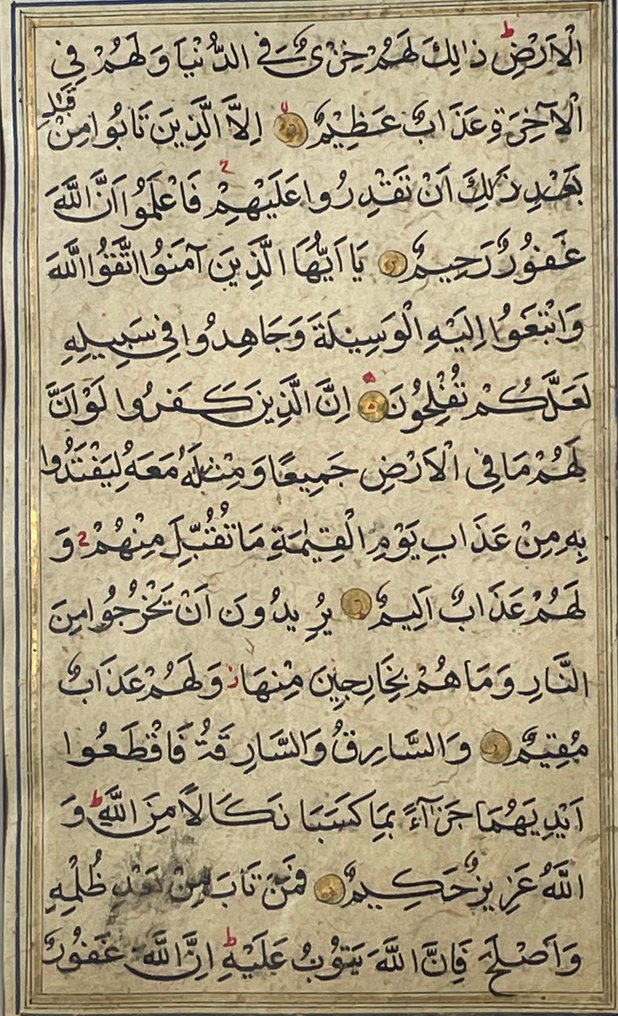 الْاَرْضِ ط ذَالِكَ لَهُمْ خِزْىٌ فِى الدُّنْيَا وَلَهُمْ فِى
الْاٰخِرَةِ عَذَابٌ عَظِيْمٌ لا اِلَّا الَّذِينَ تَابُوا مِنْ قَبْلِ
بَعْدِ ذٰلِكَ اَنْ تَقْدِرُوا عَلَيْهِمْ ج فَاعْلَمُوا اَنَّ اللّٰهَ
غَفُورٌ رَحِيمٌ يَا اَيُّهَا الَّذِينَ آمَنُوا اتَّقُوا اللّٰهَ
وَابْتَغَوُا اِلَيْهِ الْوَسِيْلَةَ وَجَاهِدُوا فِى سَبِيلِهِ
لَعَلَّكُمْ تُفْلِحُونَ اِنَّ الَّذِينَ كَفَرُوا لَوْ اَنَّ
لَهُمْ مَا فِى الْاَرْضِ جَمِيعًا وَمِثْلَهُ مَعَهُ لِيَفْتَدُوا
بِهِ مِنْ عَذَابِ يَوْمِ الْقِيٰمَةِ مَا تُقُبِّلَ مِنْهُمْ ج وَ
لَهُمْ عَذَابٌ اَلِيمٌ يُرِيدُونَ اَنْ يَخْرُجُوا مِنَ
النَّارِ وَمَا هُمْ بِخَارِجِينَ مِنْهَا ز وَلَهُمْ عَذَابٌ
مُقِيمٌ وَالسَّارِقُ وَالسَّارِقَةُ فَاقْطَعُوا
اَيْدِيَهُمَا جَزَآءً بِمَا كَسَبَا نَكَالًا مِنَ اللّٰهِ ط وَ
اللّٰهُ عَزِيزٌ حَكِيمٌ فَمَنْ تَابَ مِنْ بَعْدِ ظُلْمِهِ
وَاَصْلَحَ فَاِنَّ اللّٰهَ يَتُوبُ عَلَيْهِ ط اِنَّ اللّٰهَ غَفُورٌ